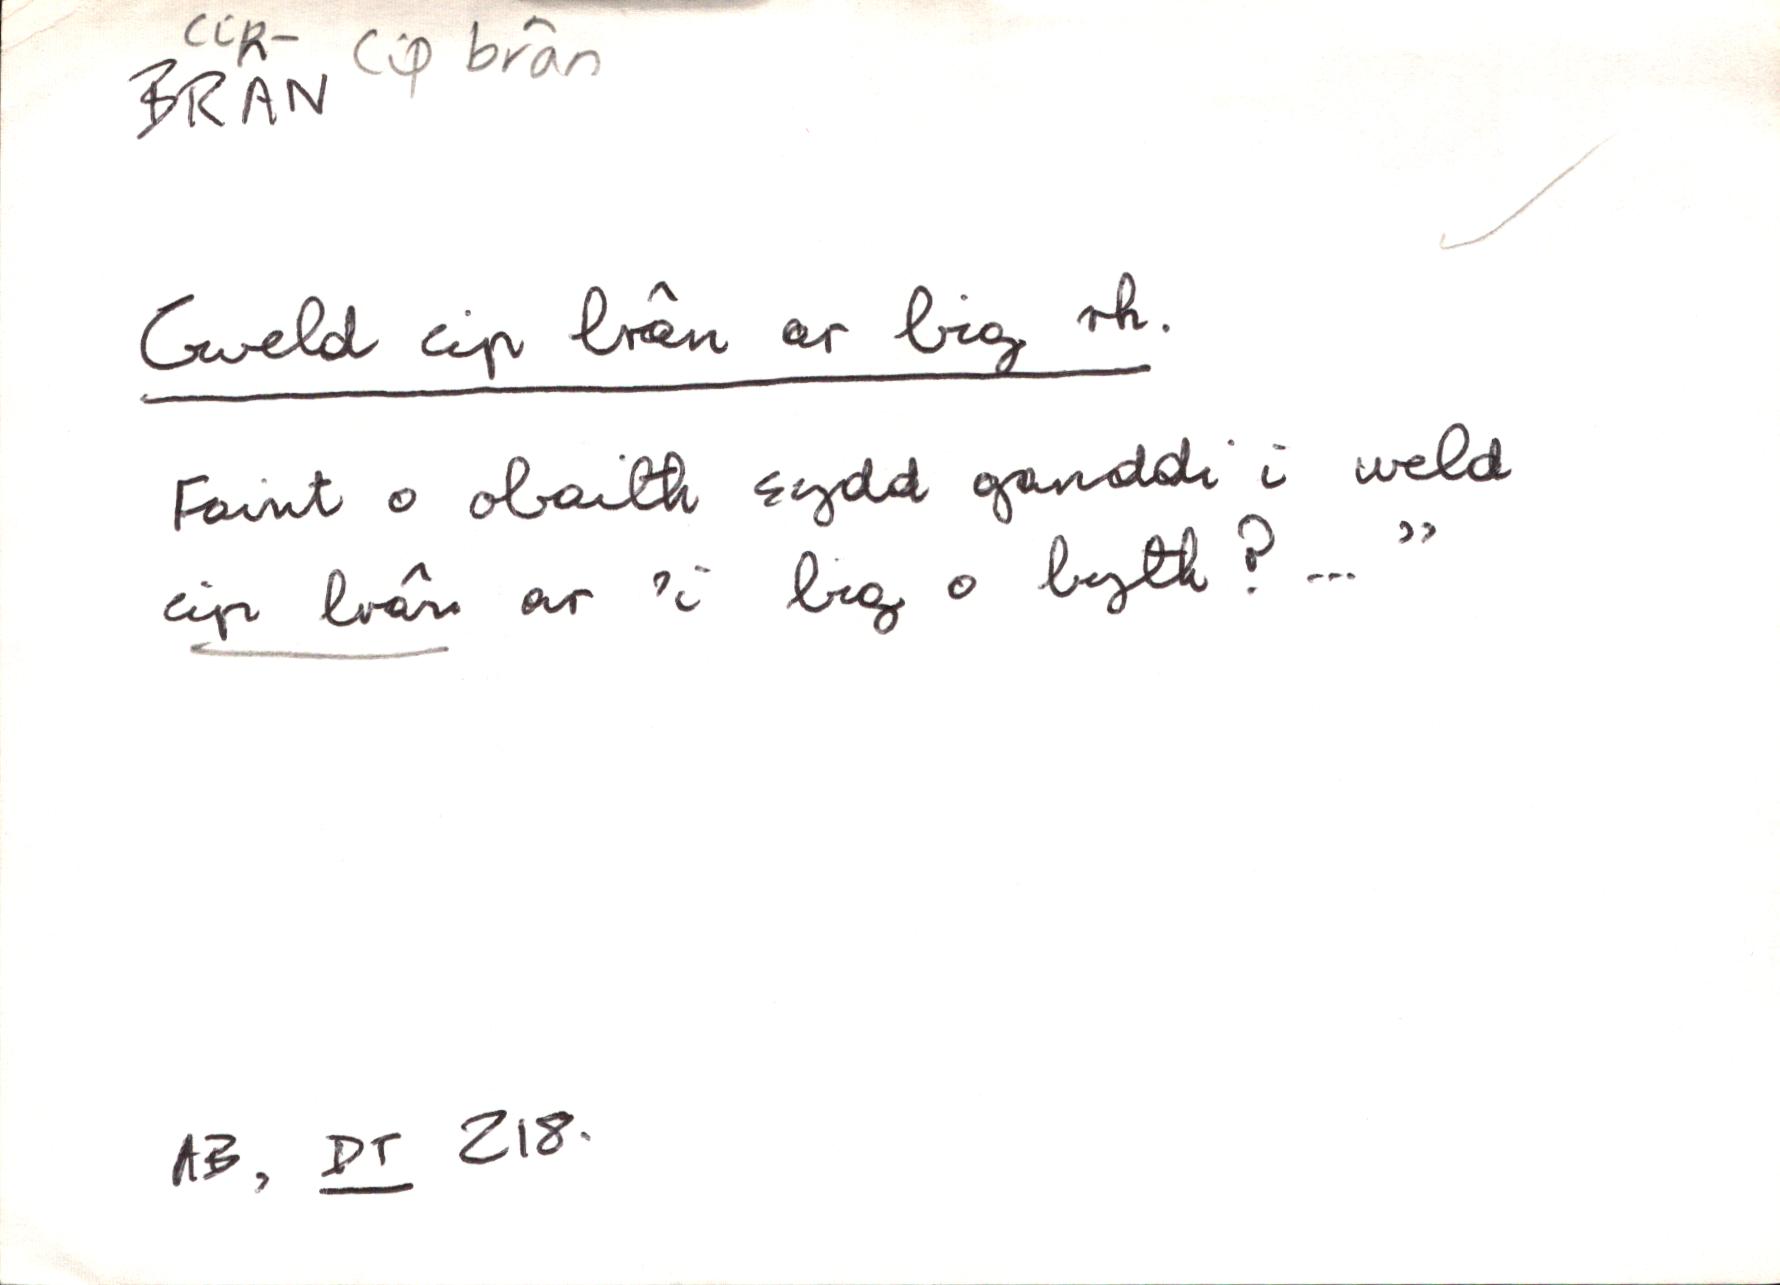 CIP-
BRAN cip brân
Gweld cip brân ar big rh.
Faint o obaith sydd ganddi i weld
cip brân ar 'i big o byth? ... "
AB, DT 218.